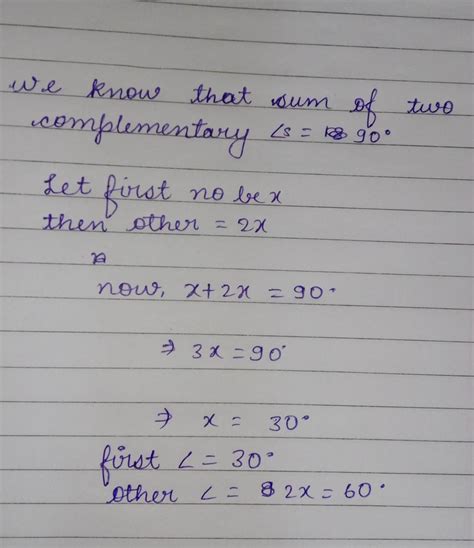 we know that sum of two
complementary ∠s = 90°
Let first no be x
then other = 2x
now, x+2x = 90°
⇒ 3x = 90°
⇒ x = 30°
first ∠ = 30°
other ∠ = 2x = 60°